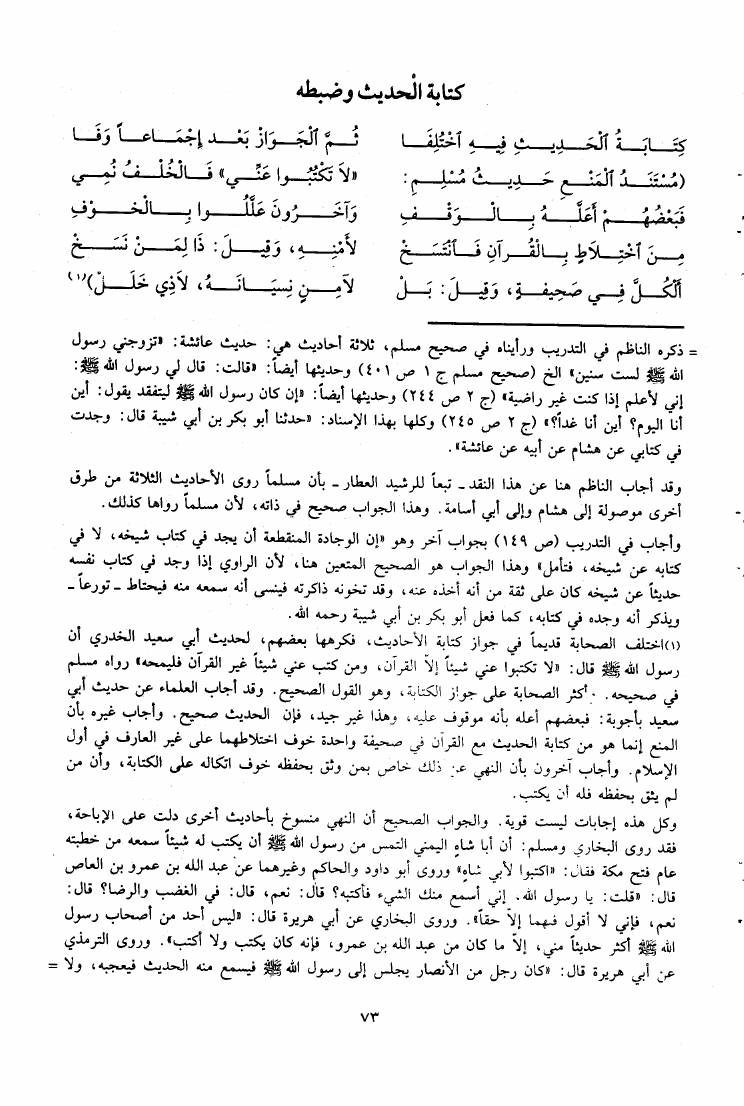 كتابة الْحديث وضبطه
كِتَابَةُ ٱلْحَدِيثِ فِيهِ ٱخْتُلِفَا ثُمَّ ٱلْجَوَازُ بَعْدَ إِجْمَاعاً وَفَا
(مُسْتَنَدُ ٱلْمَنْعِ حَدِيثُ مُسْلِمِ: «لاَ تَكْتُبُوا عَنِّي» فَالْخُلْفُ نُمِي
فَبَعْضُهُمْ أَعَلَّهُ بِالْوَقْفِ وَآخَرُونَ عَلَّلُوا بِالْخَوْفِ
مِنَ ٱخْتِلاَطٍ بِالْقُرآنِ فَٱنْتَسَخْ لأَمْنِهِ، وَقِيلَ: ذَا لِمَنْ نَسَخْ
ٱلْكُلَّ فِي صَحِيفَةٍ، وَقِيلَ: بَلْ لآمِنٍ نِسْيَانَهُ، لاَذِي خَلَلْ)(١)
= ذكره الناظم في التدريب ورأيناه في صحيح مسلم، ثلاثة أحاديث هي: حديث عائشة: «تزوجني رسول
الله ﷺ لست سنين» الخ (صحيح مسلم ج ١ ص ٤٠١) وحديثها أيضاً: «قالت: قال لي رسول الله ﷺ:
إني لأعلم إذا كنت غير راضية» (ج ٢ ص ٢٤٤) وحديثها أيضاً: «إن كان رسول الله ﷺ ليتفقد يقول: أين
أنا اليوم؟ أين أنا غداً؟» (ج ٢ ص ٢٤٥) وكلها بهذا الإسناد: «حدثنا أبو بكر بن أبي شيبة قال: وجدت
في كتابي عن هشام عن أبيه عن عائشة».
وقد أجاب الناظم هنا عن هذا النقد ـ تبعاً للرشيد العطار ـ بأن مسلماً روى الأحاديث الثلاثة من طرق
أخرى موصولة إلى هشام وإلى أبي أسامة. وهذا الجواب صحيح في ذاته، لأن مسلماً رواها كذلك.
وأجاب في التدريب (ص ١٤٩) بجواب آخر وهو «إن الوجادة المنقطعة أن يجد في كتاب شيخه، لا في
كتابه عن شيخه، فتأمل» وهذا الجواب هو الصحيح المتعين هنا، لأن الراوي إذا وجد في كتاب نفسه
حديثاً عن شيخه كان على ثقة من أنه أخذه عنه، وقد تخونه ذاكرته فينسى أنه سمعه منه فيحتاط ـ تورعاً ـ
ويذكر أنه وجده في كتابه، كما فعل أبو بكر بن أبي شيبة رحمه الله.
(١)اختلف الصحابة قديماً في جواز كتابة الأحاديث، فكرهها بعضهم، لحديث أبي سعيد الخدري أن
رسول الله ﷺ قال: «لا تكتبوا عني شيئاً إلا القرآن، ومن كتب عني شيئاً غير القرآن فليمحه» رواه مسلم
في صحيحه. وأكثر الصحابة على جواز الكتابة، وهو القول الصحيح. وقد أجاب العلماء عن حديث أبي
سعيد بأجوبة: فبعضهم أعله بأنه موقوف عليه، وهذا غير جيد، فإن الحديث صحيح. وأجاب غيره بأن
المنع إنما هو من كتابة الحديث مع القرآن في صحيفة واحدة خوف اختلاطهما على غير العارف في أول
الإسلام. وأجاب آخرون بأن النهي عن ذلك خاص بمن وثق بحفظه خوف اتكاله على الكتابة، وأن من
لم يثق بحفظه فله أن يكتب.
وكل هذه إجابات ليست قوية. والجواب الصحيح أن النهي منسوخ بأحاديث أخرى دلت على الإباحة،
فقد روى البخاري ومسلم: أن أبا شاهٍ اليمني التمس من رسول الله ﷺ أن يكتب له شيئاً سمعه من خطبته
عام فتح مكة فقال: «اكتبوا لأبي شاهٍ» وروى أبو داود والحاكم وغيرهما عن عبد الله بن عمرو بن العاص
قال: «قلت: يا رسول الله. إني أسمع منك الشيء فأكتبه؟ قال: نعم، قال: في الغضب والرضا؟ قال:
نعم، فإني لا أقول فيهما إلاّ حقاً». وروى البخاري عن أبي هريرة قال: «ليس أحد من أصحاب رسول
الله ﷺ أكثر حديثاً مني، إلاّ ما كان من عبد الله بن عمرو، فإنه كان يكتب ولا أكتب». وروى الترمذي
عن أبي هريرة قال: «كان رجل من الأنصار يجلس إلى رسول الله ﷺ فيسمع منه الحديث فيعجبه، ولا =
٧٣